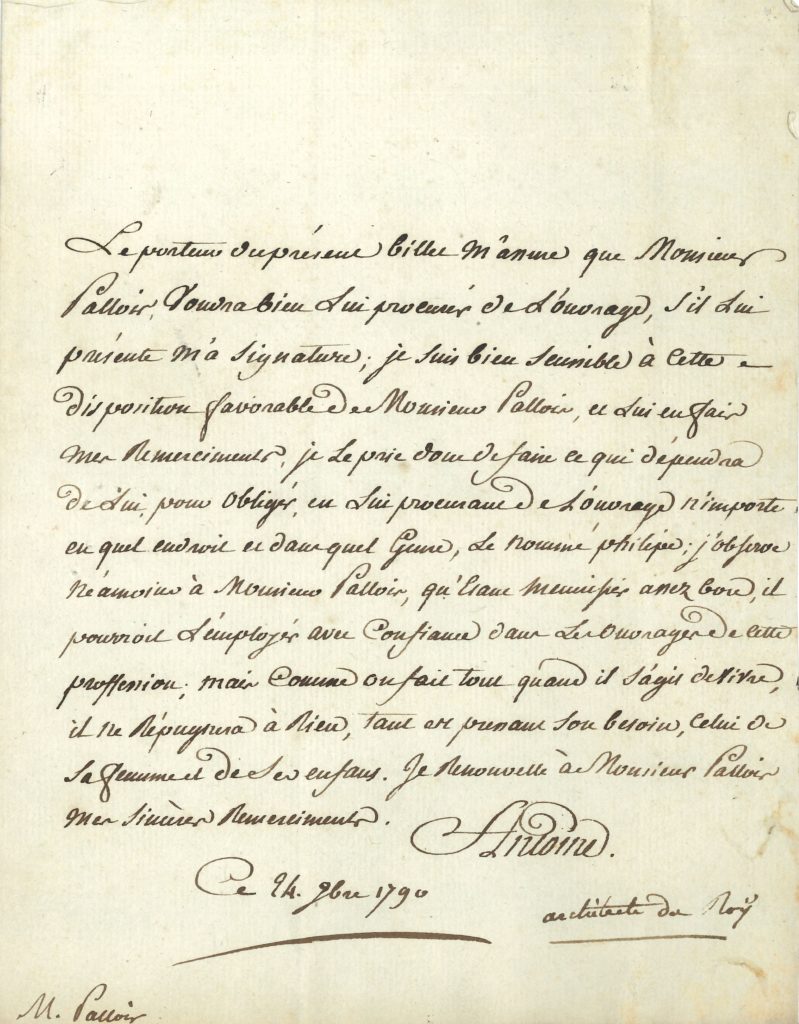 Le porteur du présent billet m'assure que Monsieur
Palloir, Voudra bien Lui procurér de L'ouvrage, s'il Lui
présente m'a signature; je suis bien sensible à Cette
disposition favorable de Monsieur Palloir, et Lui en fais
mes Remerciments, je Le prie donc de faire ce qui dépendra
de Lui, pour obligér, en Lui procurant de L'ouvrage n'importe
en quel endroit et dans quel Genre, Le nommé philipe; j'observe
néamoins à Monsieur Palloir, qu'Etant menuisier assez bon, il
pourroit L'émployér avec Confiance dans Les Ouvrages de Cette
proffession; mais Comme on fait tout quand il s'agit de vivre,
il ne Répugnera à Rien, tant est pressant son besoin, Celui de
sa femme et de ses enfans. Je Renouvelle à Monsieur Palloir
mes sincères Remerciments.
Antoine.
Ce 24. 9bre 1790
architecte du Roÿ
M. Palloir